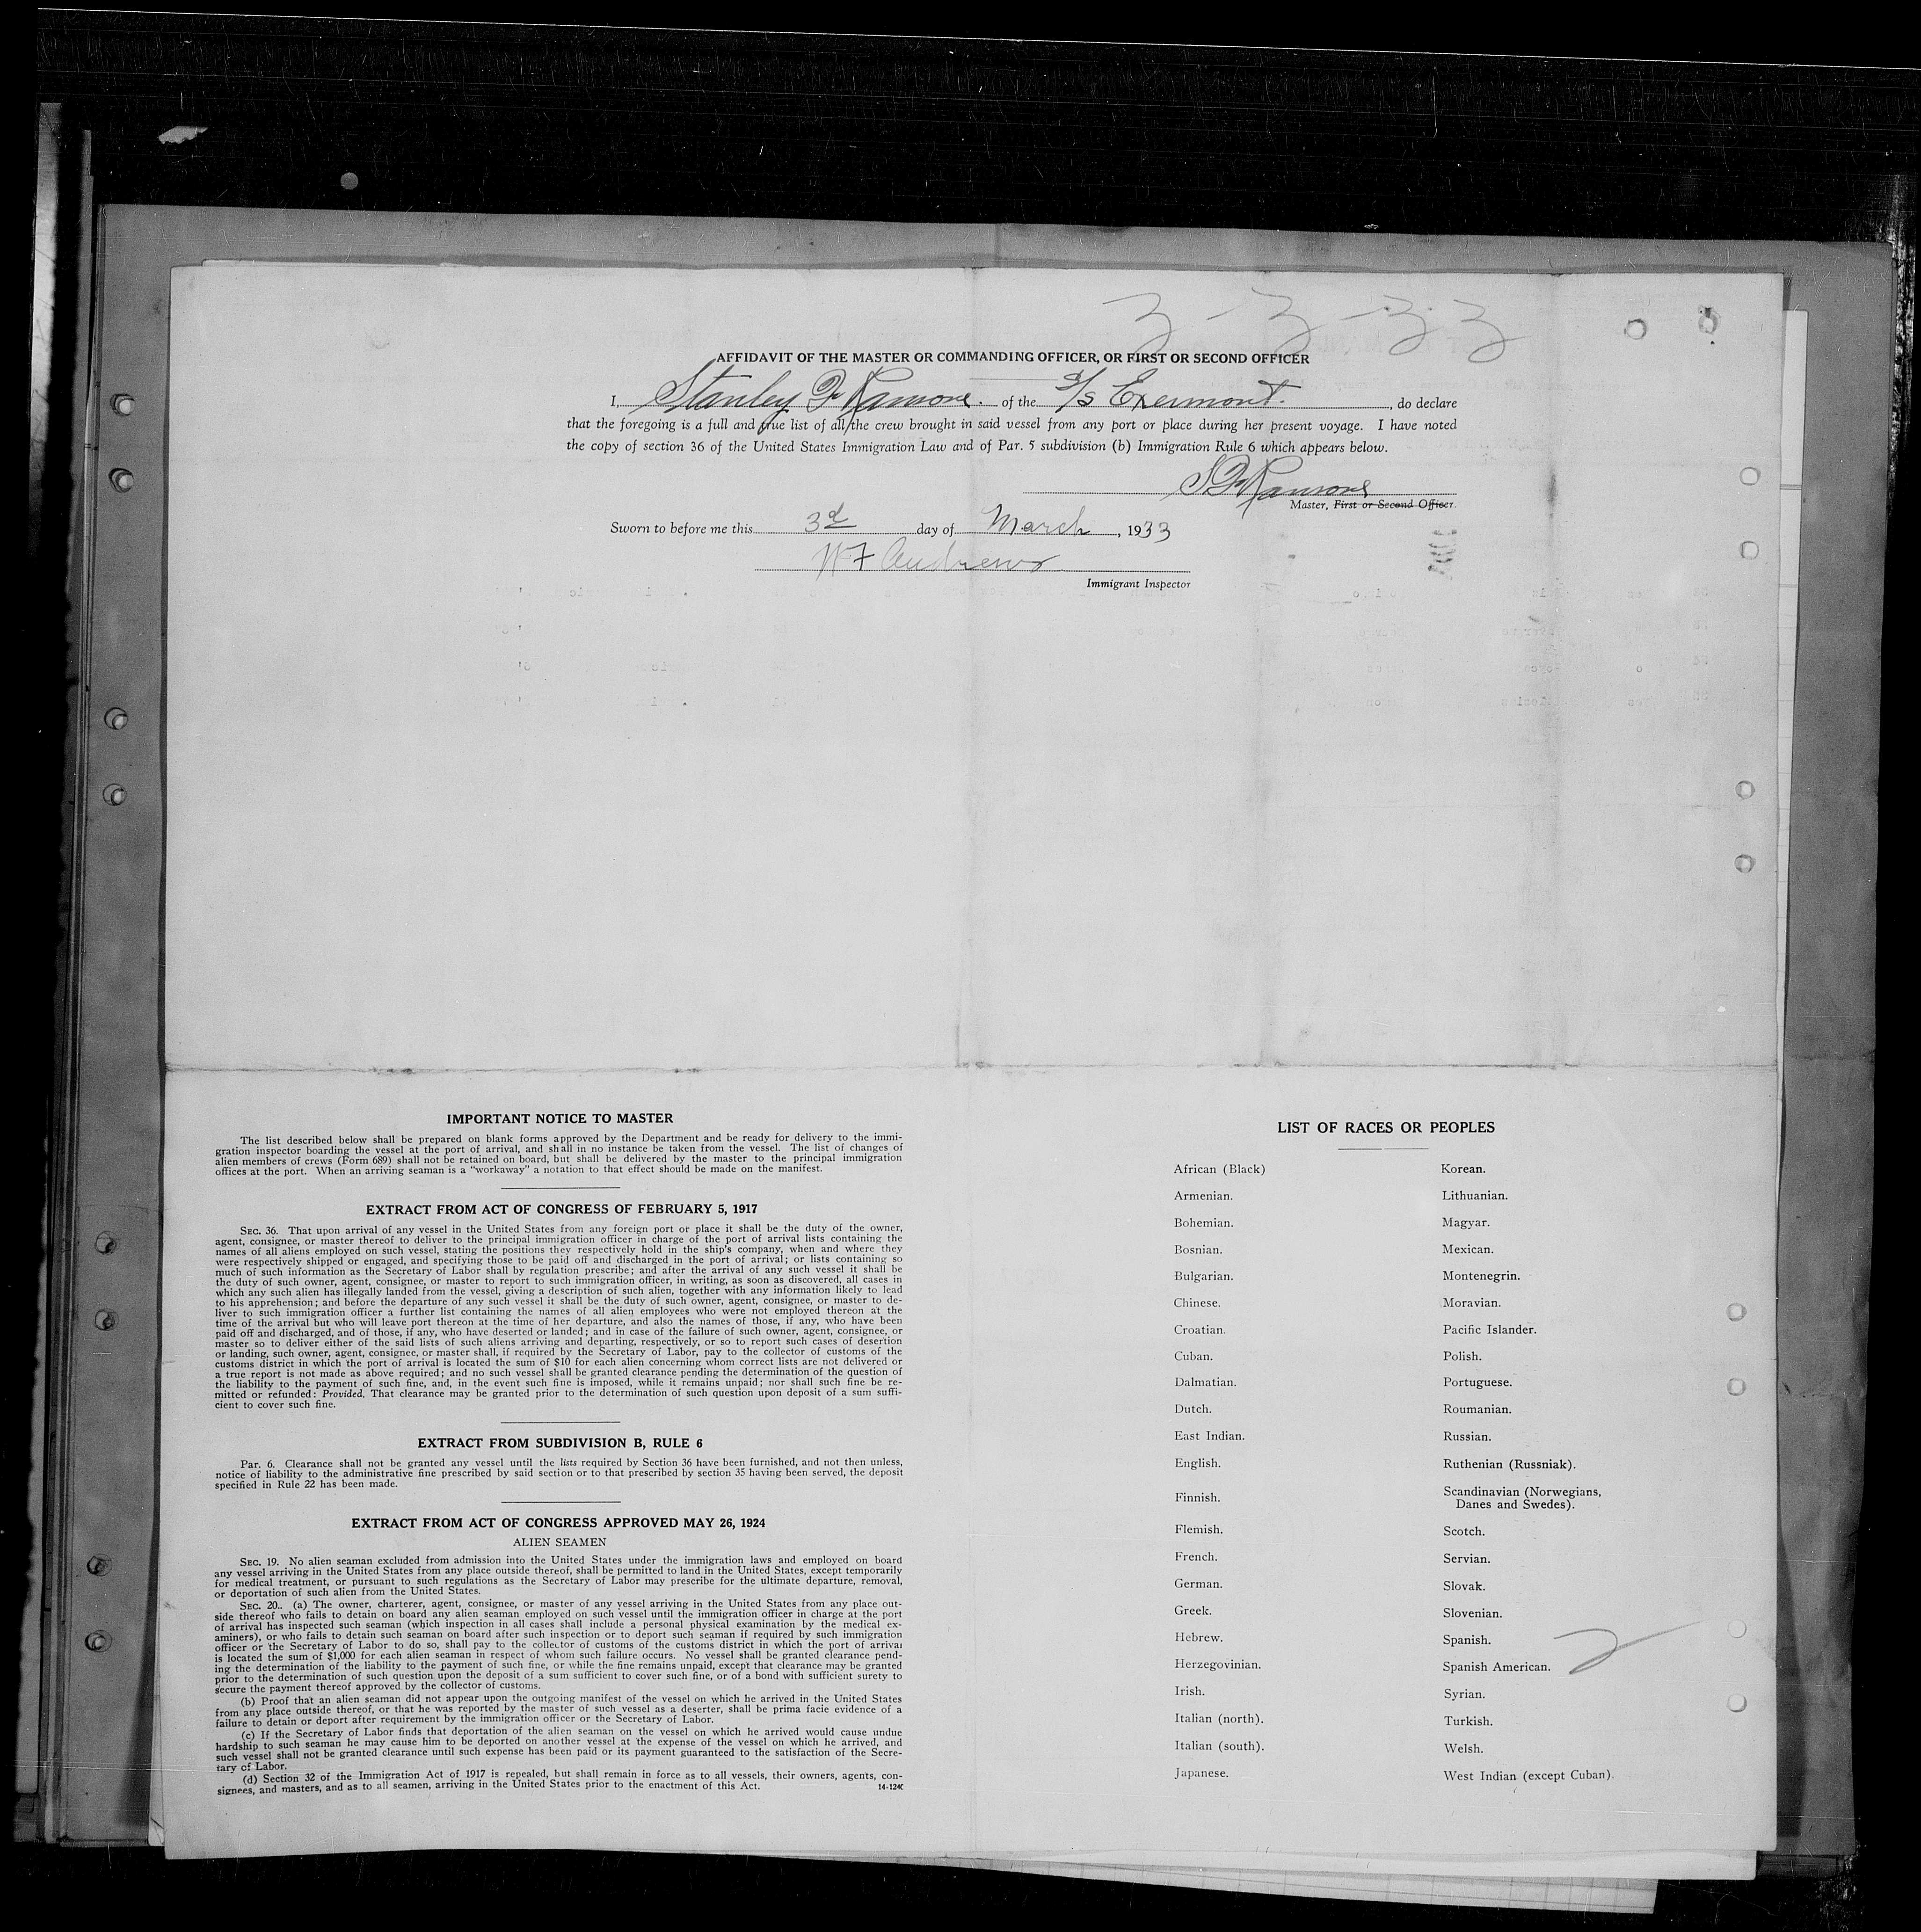 3-3-33
AFFIDAVIT OF THE MASTER OR COMMANDING OFFICER, OR FIRST OR SECOND OFFICER
I, Stanley F Ransone. of the S/S Exermont. , do declare
that the foregoing is a full and true list of all the crew brought in said vessel from any port or place during her present voyage. I have noted
the copy of section 36 of the United States Immigration Law and of Par. 5 subdivision (b) Immigration Rule 6 which appears below.
S F Ransone
Master, First or Second Officer.
Sworn to before me this 3d day of March, 1933
W F Andrews
Immigrant Inspector
IMPORTANT NOTICE TO MASTER
The list described below shall be prepared on blank forms approved by the Department and be ready for delivery to the immi-
gration inspector boarding the vessel at the port of arrival, and shall in no instance be taken from the vessel. The list of changes of
alien members of crews (Form 689) shall not be retained on board, but shall be delivered by the master to the principal immigration
offices at the port. When an arriving seaman is a "workaway" a notation to that effect should be made on the manifest.
EXTRACT FROM ACT OF CONGRESS OF FEBRUARY 5, 1917
SEC. 36. That upon arrival of any vessel in the United States from any foreign port or place it shall be the duty of the owner,
agent, consignee, or master thereof to deliver to the principal immigration officer in charge of the port of arrival lists containing the
names of all aliens employed on such vessel, stating the positions they respectively hold in the ship's company, when and where they
were respectively shipped or engaged, and specifying those to be paid off and discharged in the port of arrival; or lists containing so
much of such information as the Secretary of Labor shall by regulation prescribe; and after the arrival of any such vessel it shall be
the duty of such owner, agent, consignee, or master to report to such immigration officer, in writing, as soon as discovered, all cases in
which any such alien has illegally landed from the vessel, giving a description of such alien, together with any information likely to lead
to his apprehension; and before the departure of any such vessel it shall be the duty of such owner, agent, consignee, or master to de-
liver to such immigration officer a further list containing the names of all alien employees who were not employed thereon at the
time of the arrival but who will leave port thereon at the time of her departure, and also the names of those, if any, who have been
paid off and discharged, and of those, if any, who have deserted or landed; and in case of the failure of such owner, agent, consignee, or
master so to deliver either of the said lists of such aliens arriving and departing, respectively, or so to report such cases of desertion
or landing, such owner, agent, consignee, or master shall, if required by the Secretary of Labor, pay to the collector of customs of the
customs district in which the port of arrival is located the sum of $10 for each alien concerning whom correct lists are not delivered or
a true report is not made as above required; and no such vessel shall be granted clearance pending the determination of the question of
the liability to the payment of such fine, and, in the event such fine is imposed, while it remains unpaid; nor shall such fine be re-
mitted or refunded: Provided, That clearance may be granted prior to the determination of such question upon deposit of a sum suffi-
cient to cover such fine.
EXTRACT FROM SUBDIVISION B, RULE 6
Par. 6. Clearance shall not be granted any vessel until the lists required by Section 36 have been furnished, and not then unless,
notice of liability to the administrative fine prescribed by said section or to that prescribed by section 35 having been served, the deposit
specified in Rule 22 has been made.
EXTRACT FROM ACT OF CONGRESS APPROVED MAY 26, 1924
ALIEN SEAMEN
SEC. 19. No alien seaman excluded from admission into the United States under the immigration laws and employed on board
any vessel arriving in the United States from any place outside thereof, shall be permitted to land in the United States, except temporarily
for medical treatment, or pursuant to such regulations as the Secretary of Labor may prescribe for the ultimate departure, removal,
or deportation of such alien from the United States.
SEC. 20.. (a) The owner, charterer, agent, consignee, or master of any vessel arriving in the United States from any place out-
side thereof who fails to detain on board any alien seaman employed on such vessel until the immigration officer in charge at the port
of arrival has inspected such seaman (which inspection in all cases shall include a personal physical examination by the medical ex-
aminers), or who fails to detain such seaman on board after such inspection or to deport such seaman if required by such immigration
officer or the Secretary of Labor to do so, shall pay to the collector of customs of the customs district in which the port of arrival
is located the sum of $1,000 for each alien seaman in respect of whom such failure occurs. No vessel shall be granted clearance pend-
ing the determination of the liability to the payment of such fine, or while the fine remains unpaid, except that clearance may be granted
prior to the determination of such question upon the deposit of a sum sufficient to cover such fine, or of a bond with sufficient surety to
secure the payment thereof approved by the collector of customs.
(b) Proof that an alien seaman did not appear upon the outgoing manifest of the vessel on which he arrived in the United States
from any place outside thereof, or that he was reported by the master of such vessel as a deserter, shall be prima facie evidence of a
failure to detain or deport after requirement by the immigration officer or the Secretary of Labor.
(c) If the Secretary of Labor finds that deportation of the alien seaman on the vessel on which he arrived would cause undue
hardship to such seaman he may cause him to be deported on another vessel at the expense of the vessel on which he arrived, and
such vessel shall not be granted clearance until such expense has been paid or its payment guaranteed to the satisfaction of the Secre-
tary of Labor.
(d) Section 32 of the Immigration Act of 1917 is repealed, but shall remain in force as to all vessels, their owners, agents, con-
signees, and masters, and as to all seamen, arriving in the United States prior to the enactment of this Act. 14-124
LIST OF RACES OR PEOPLES
African (Black)
Armenian.
Bohemian.
Bosnian.
Bulgarian.
Chinese.
Croatian.
Cuban.
Dalmatian.
Dutch.
East Indian.
English.
Finnish.
Flemish.
French.
German.
Greek.
Hebrew.
Herzegovinian.
Irish.
Italian (north).
Italian (south).
Japanese.
Korean.
Lithuanian.
Magyar.
Mexican.
Montenegrin.
Moravian.
Pacific Islander.
Polish.
Portuguese.
Roumanian.
Russian.
Ruthenian (Russniak).
Scandinavian (Norwegians,
Danes and Swedes).
Scotch.
Servian.
Slovak.
Slovenian.
Spanish.
Spanish American.
Syrian.
Turkish.
Welsh.
West Indian (except Cuban).
2